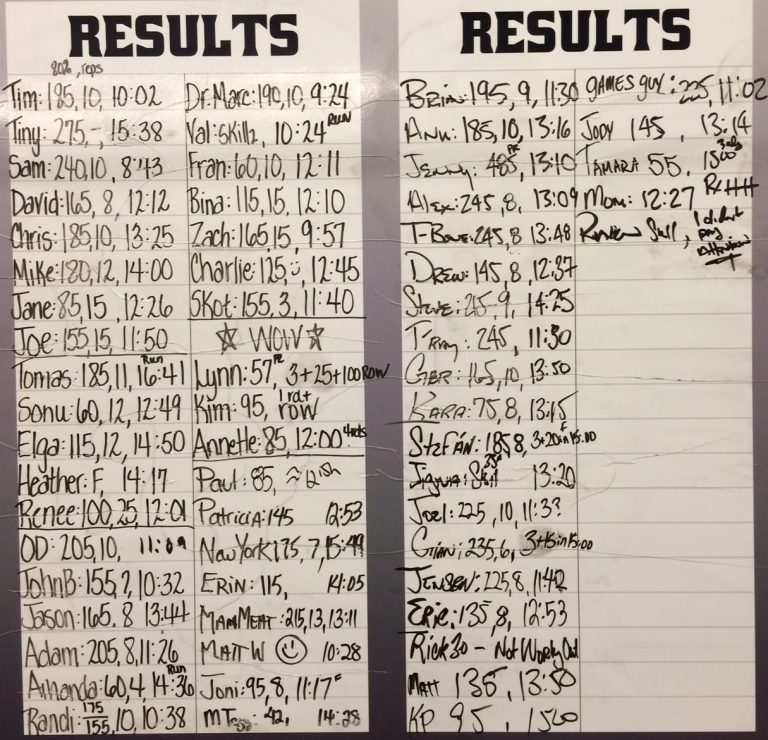 RESULTS
80%, reps
Tim: 185, 10, 10:02
Tiny: 275, -, 15:38
Sam: 240, 10, 8:43
David: 165, 8, 12:12
Chris: 185, 10, 13:25
Mike: 180, 12, 14:00
Jane: 85, 15, 12:26
Joe: 155, 15, 11:50
Tomas: 185, 11, 16:41 Run
Sonu: 60, 12, 12:49
Elga: 115, 12, 14:50
Heather: F, 14:17
Renee: 100, 25, 12:01
OD: 205, 10, 11:09
John B: 155, ?, 10:32
Jason: 165. 8 13:44
Adam: 205, 8, 11:26
Amanda: 60, 4, 14:36 Run
Randi: 175 155, 10, 10:38
Dr. Marc: 190, 10, 9:24
Val: Skillz, 10:24 RUN
Fran: 60, 10, 12:11
Bina: 115, 15, 12:10
Zach: 165, 15, 9:57
Charlie: 125, 12:45
Skot: 155, 3, 11:40
☆ WOW ☆
Lynn: 57, PR 3+25+100 ROW
Kim: 95, 1 rd+ row
Annette: 85, 12:00 4 rds
Paul: 85, ish
Patricia: 145 12:53
New York 175, 7, 15:49
ERIN: 115, 14:05
MANMEAT: 215, 13, 13:11
MATT W ☺ 10:28
Joni: 95, 8, 11:17 F
14:28
RESULTS
Brian: 195, 9, 11:30
Ann: 185, 10, 13:16
Jenny: PR 13:10
Alex: 245, 8, 13:09
T-Bone: 245, 8 13:48
Drew: 145, 8, 12:37
Steve: 215, 9, 14:25
245, 11:30
165, 10, 13:50
Kara: 75, 8, 13:15
Stefán: 185, 8, 3+20 in 15:00
13:20
Joel: 225, 10, 11:3?
Gian: 235, 6, 3+15 in 15:00
Jensen: 225, 8, 11:42
Eric: 135, 8, 12:53
Rick 30 - Not Working Out
Matt 135, 13:50
KP 95, 1500
GAMES GUY: 225, 11:02
Jody 145, 13:14
Tamara 55, 1500 3 rds
Mom: 12:27
I didn't pay attention